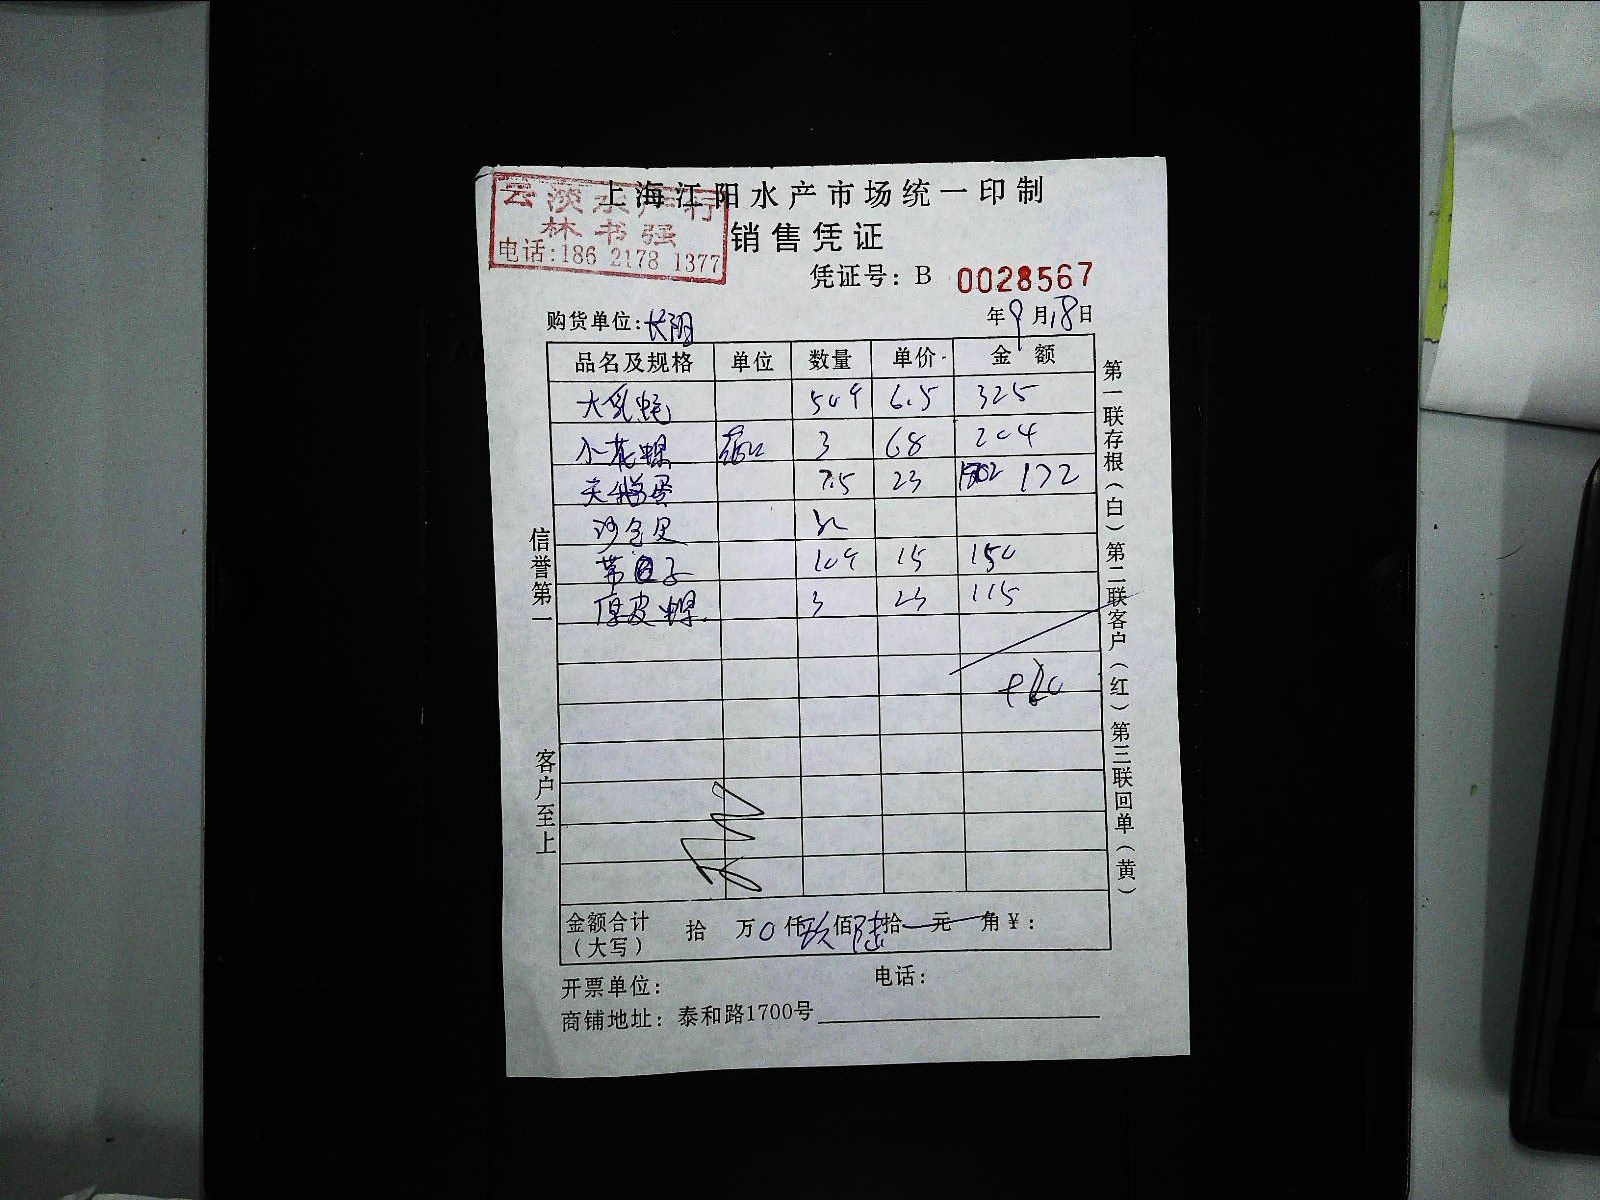 上海江阳水产市场统一印制
云淡水产行
林书强
电话:186 2178 1377
销售凭证
凭证号: B 0028567
购货单位:长阳 年9月18日
品名及规格 单位 数量 单价 金额
大乳蚝 50个 6.5 325
小花螺 3 68 204
7.5 23 172
沙包贝
带子 10个 15 150
厚皮螺 3 23 115
金额合计(大写) 拾 万0仟玖佰陆拾 元 角¥:
开票单位: 电话:
商铺地址: 泰和路1700号
信誉第一
客户至上
第一联存根(白)第二联客户(红)第三联回单(黄)